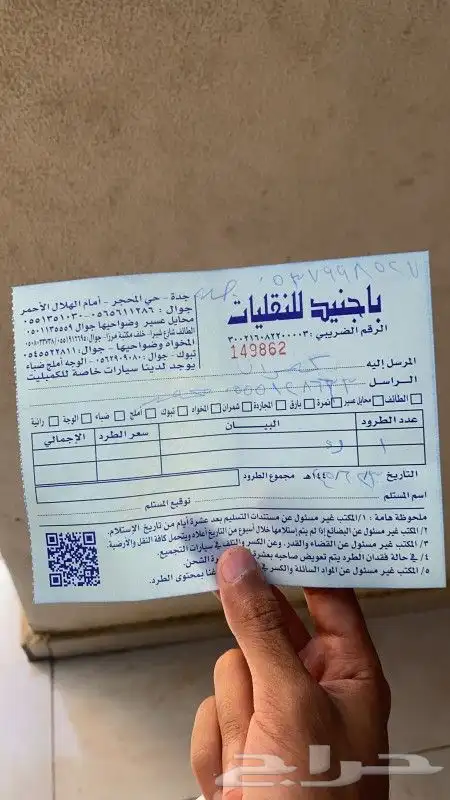 باجنيد للنقليات
الرقم الضريبي : ٣٠٠٢١٦٠٨٢٢٠٠٠٠٣
149862
جدة - حي المحجر - أمام الهلال الأحمر
جوال : ٠٥٦٥٦١١٢٨٦ - ٠٥٥١٣٥١٠٣٠
محايل عسير وضواحيها جوال : ٠٥٠١١٣٥٥٥٩
المخواة وضواحيها - جوال : ٠٥٤٥٥٢٢٨١١
تبوك - جوال : ٠٥٦٢٩٠٩٠٨٠ - الوجه أملج ضباء
يوجد لدينا سيارات خاصة للكميليت
المرسل إليه
الراسل
الطائف محايل عسير نمرة بارق المجاردة شمران المخواه تبوك أملج ضباء الوجه رانية
عدد الطرود البيــــان سعر الطرد الإجمالي
١
التاريخ ١٤٤هـ مجموع الطرود
اسم المستلم توقيع المستلم
ملحوظة هامة : ١/المكتب غير مسئول عن مستندات التسليم بعد عشرة أيام من تاريخ الإستلام.
٢/ المكتب غير مسئول عن البضائع إذا لم يتم إستلامها خلال أسبوع من التاريخ أعلاه ويتحمل كافة النقل والأرضية.
٣/ المكتب غير مسئول عن القضاء والقدر، وعن الكسر والتلف في سيارات التجميع.
٤/ في حالة فقدان الطرد يتم تعويض صاحبه بعشرة الشحن.
٥/ المكتب غير مسئول عن المواد السائلة والكسر في بمحتوى الطرد.
حراج